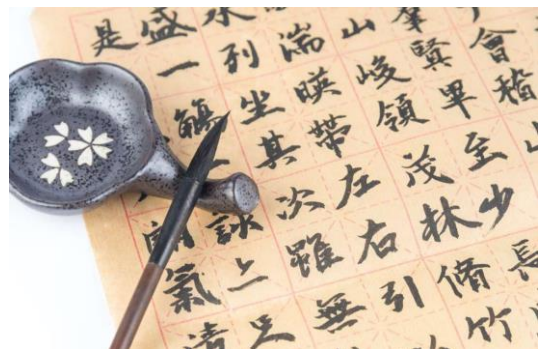 會稽山
羣賢畢至少長
山峻領茂林脩竹
湍暎帶左右引
水列坐其次雖無
盛一觴詠足
是朗氣清